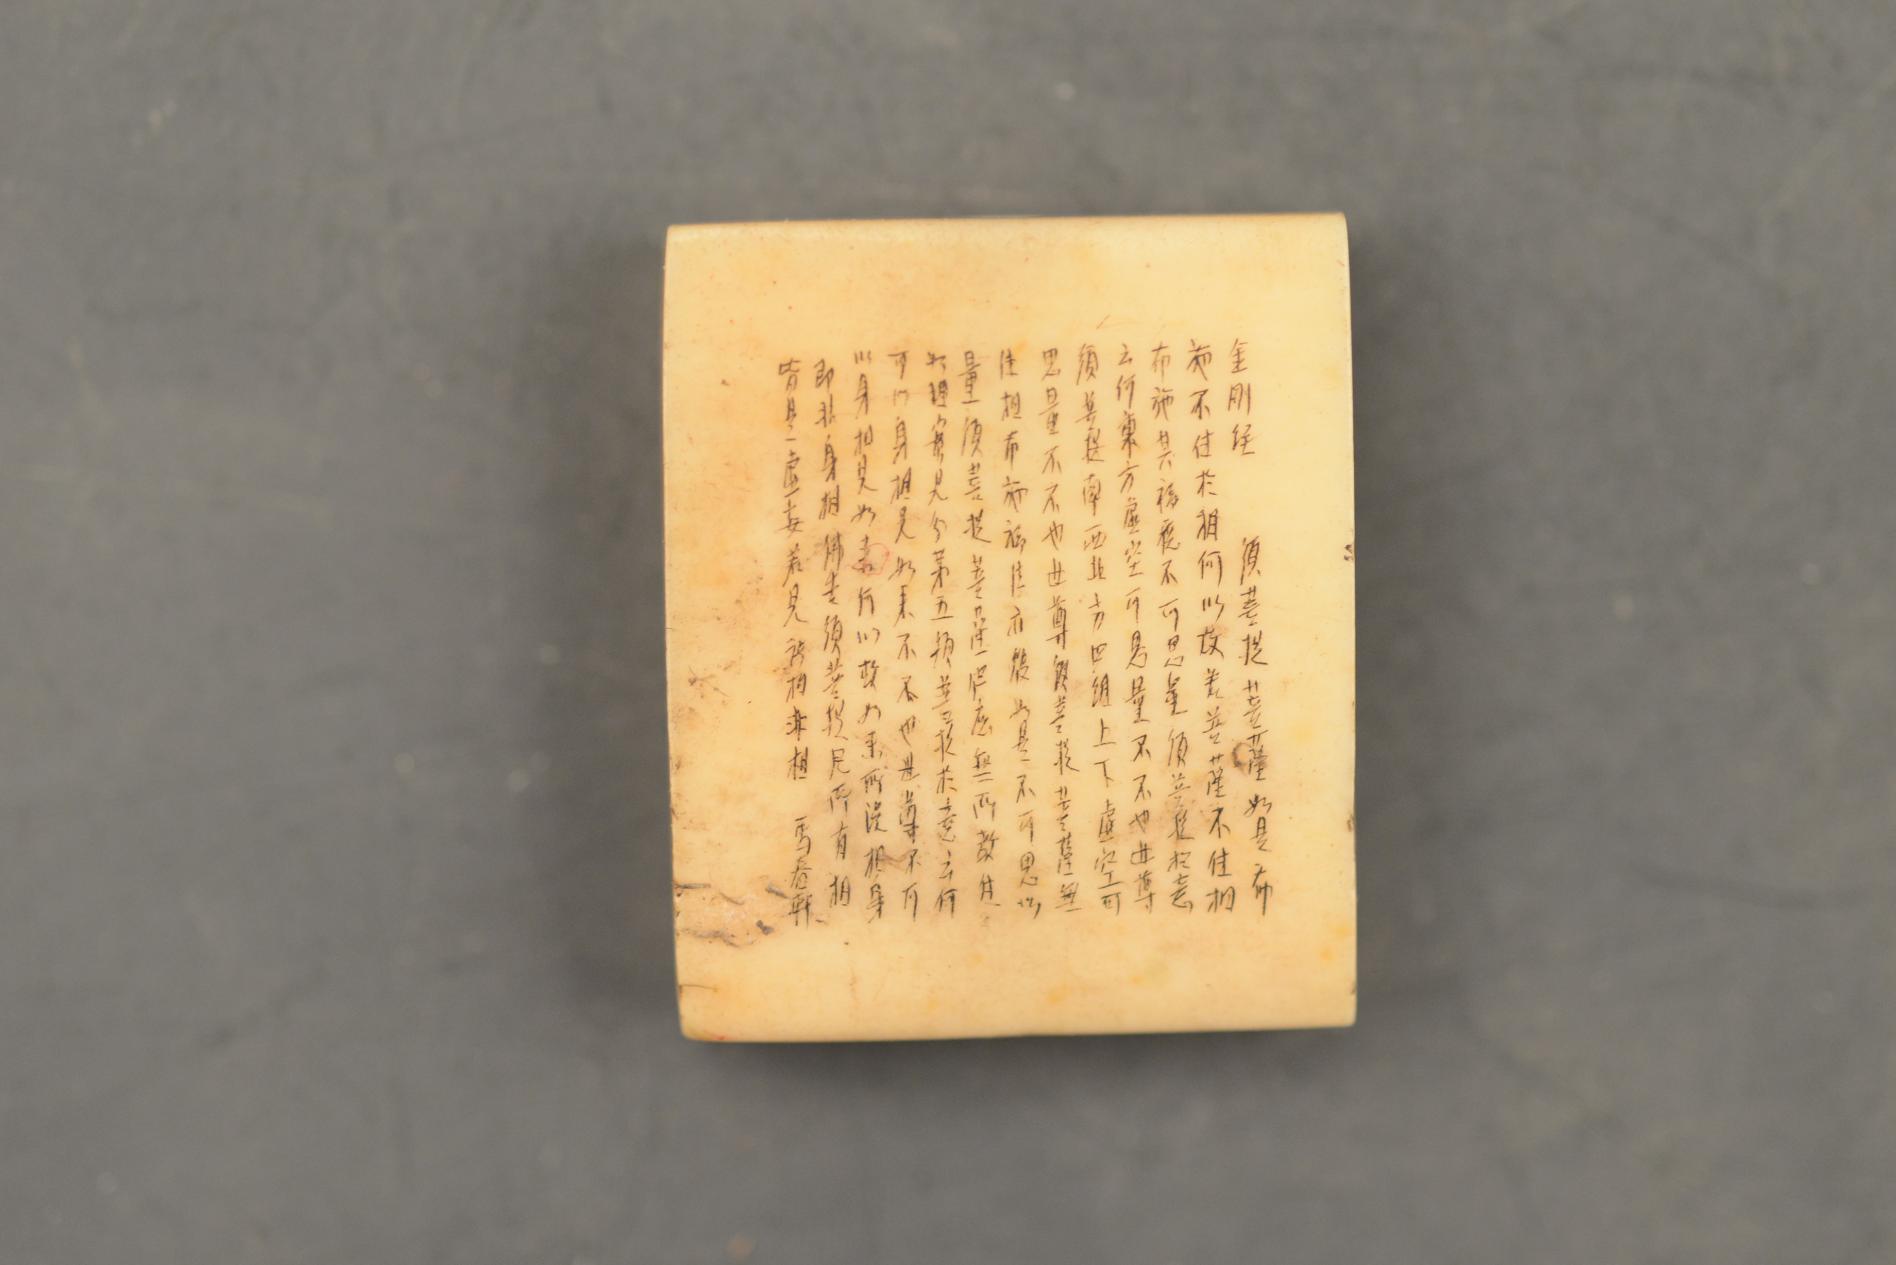 金剛经 須菩提菩薩如是布
施不住於相何以故若菩薩不住相
布施其福應不可思量須菩提於意
云何東方虛空可思量不不也世尊
須菩提南西北方四維上下虛空可
思量不不也世尊須菩提菩薩無
住相布施福德亦復如是不可思
量須菩提菩薩但應無所教住
如理實見分第五須菩提於意云何
可以身相見如來不不也世尊不可
以身相見如来何以故如来所說相身
即非身相佛告須菩提凡所有相
皆是虛妄若見諸相非相 馬春軒